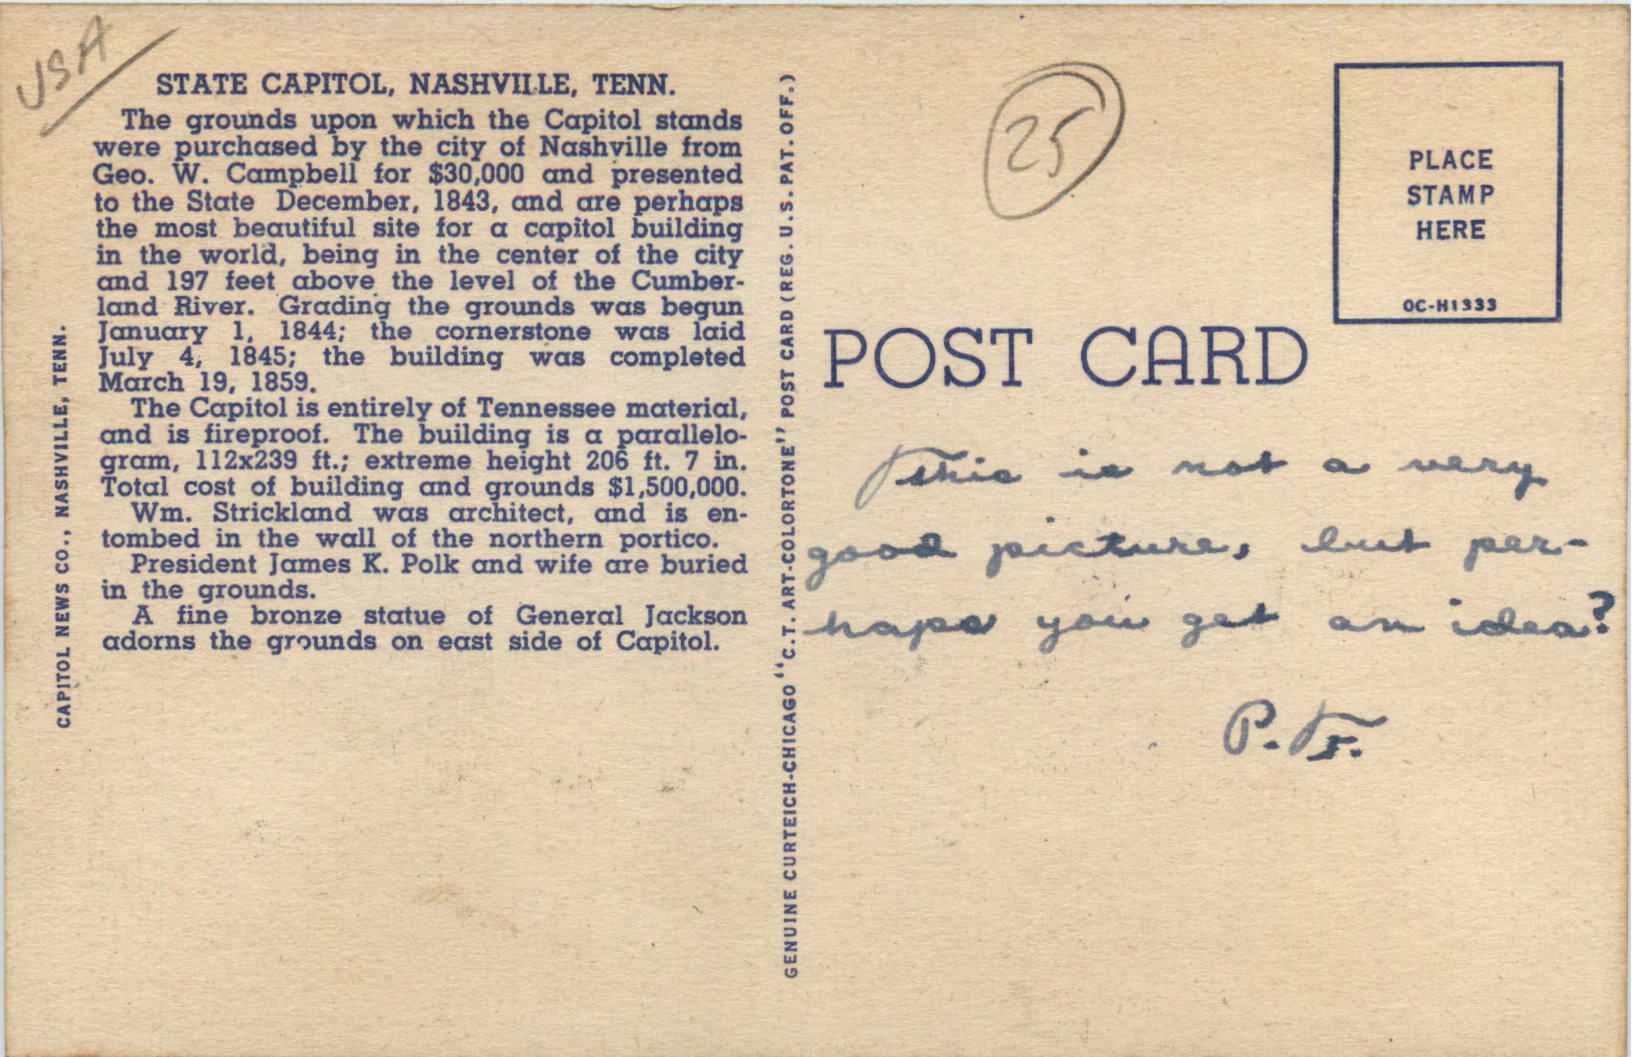 USA
STATE CAPITOL, NASHVILLE, TENN.
The grounds upon which the Capitol stands
were purchased by the city of Nashville from
Geo. W. Campbell for $30,000 and presented
to the State December, 1843, and are perhaps
the most beautiful site for a capitol building
in the world, being in the center of the city
and 197 feet above the level of the Cumber-
land River. Grading the grounds was begun
January 1, 1844; the cornerstone was laid
July 4, 1845; the building was completed
March 19, 1859.
The Capitol is entirely of Tennessee material,
and is fireproof. The building is a parallelo-
gram, 112x239 ft.; extreme height 206 ft. 7 in.
Total cost of building and grounds $1,500,000.
Wm. Strickland was architect, and is en-
tombed in the wall of the northern portico.
President James K. Polk and wife are buried
in the grounds.
A fine bronze statue of General Jackson
adorns the grounds on east side of Capitol.
CAPITOL NEWS CO., NASHVILLE, TENN.
GENUINE CURTEICH-CHICAGO "C.T. ART-COLORTONE" POST CARD (REG. U.S. PAT. OFF.)
25
PLACE
STAMP
HERE
OC-H1333
POST CARD
This is not a very
good picture, but per-
haps you get an idea?
P.F.